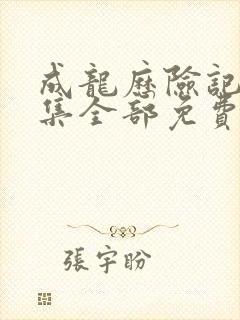 成龍歷險記
集全部免費
張宇盼